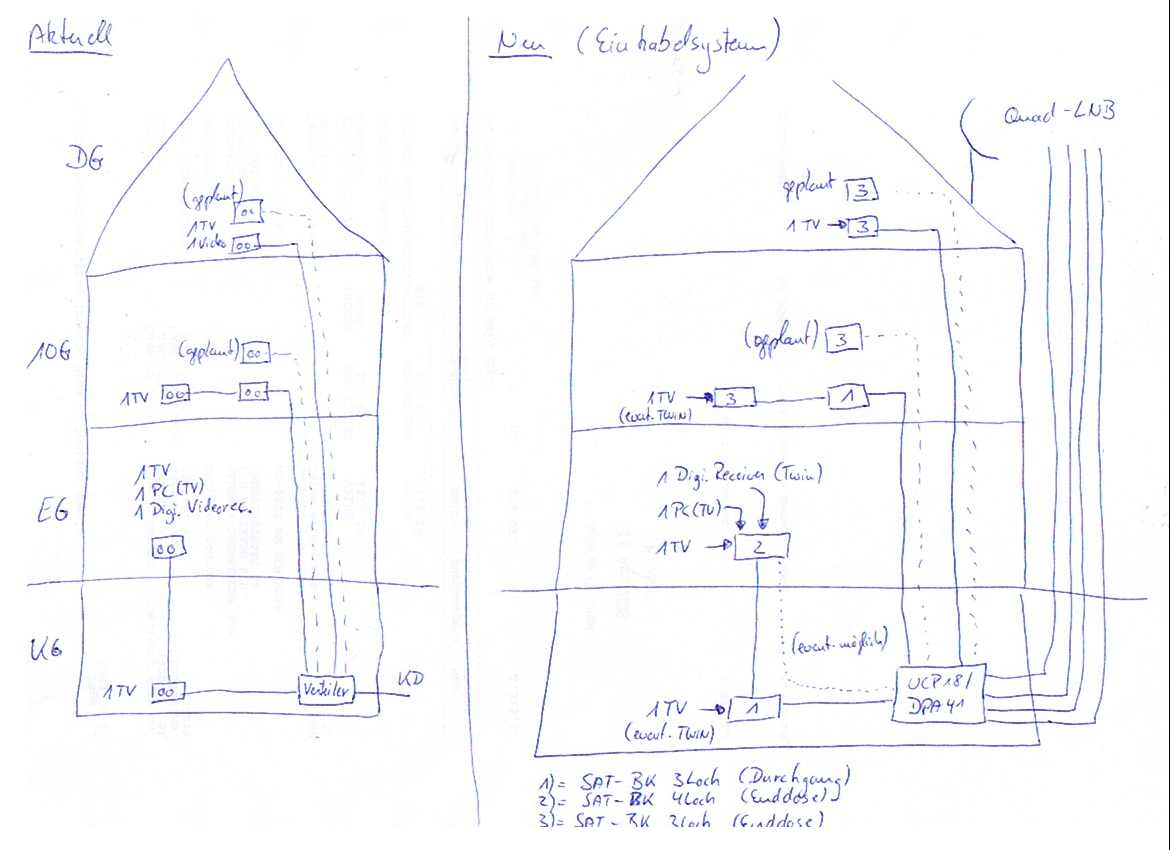 Aktuell
DG
(geplant)
00
1TV
1 Video
00
1OG
(geplant)
00
1TV
00
00
EG
1TV
1 PC (TV)
1 Digi. Videorec.
00
KG
1TV
00
Verteiler
KD
Neu (Einkabelsystem)
Quad-LNB
geplant
3
1 TV
3
(geplant)
3
1TV
3
1
(event. TWIN)
1 Digi. Receiver (Twin)
1 PC (TV)
1TV
2
(event. möglich)
1TV
1
(event. TWIN)
UCP18/
DPA41
1)= SAT-BK 3Loch (Durchgang)
2)= SAT-BK 4Loch (Enddose)
3)= SAT-BK 3Loch (Enddose)